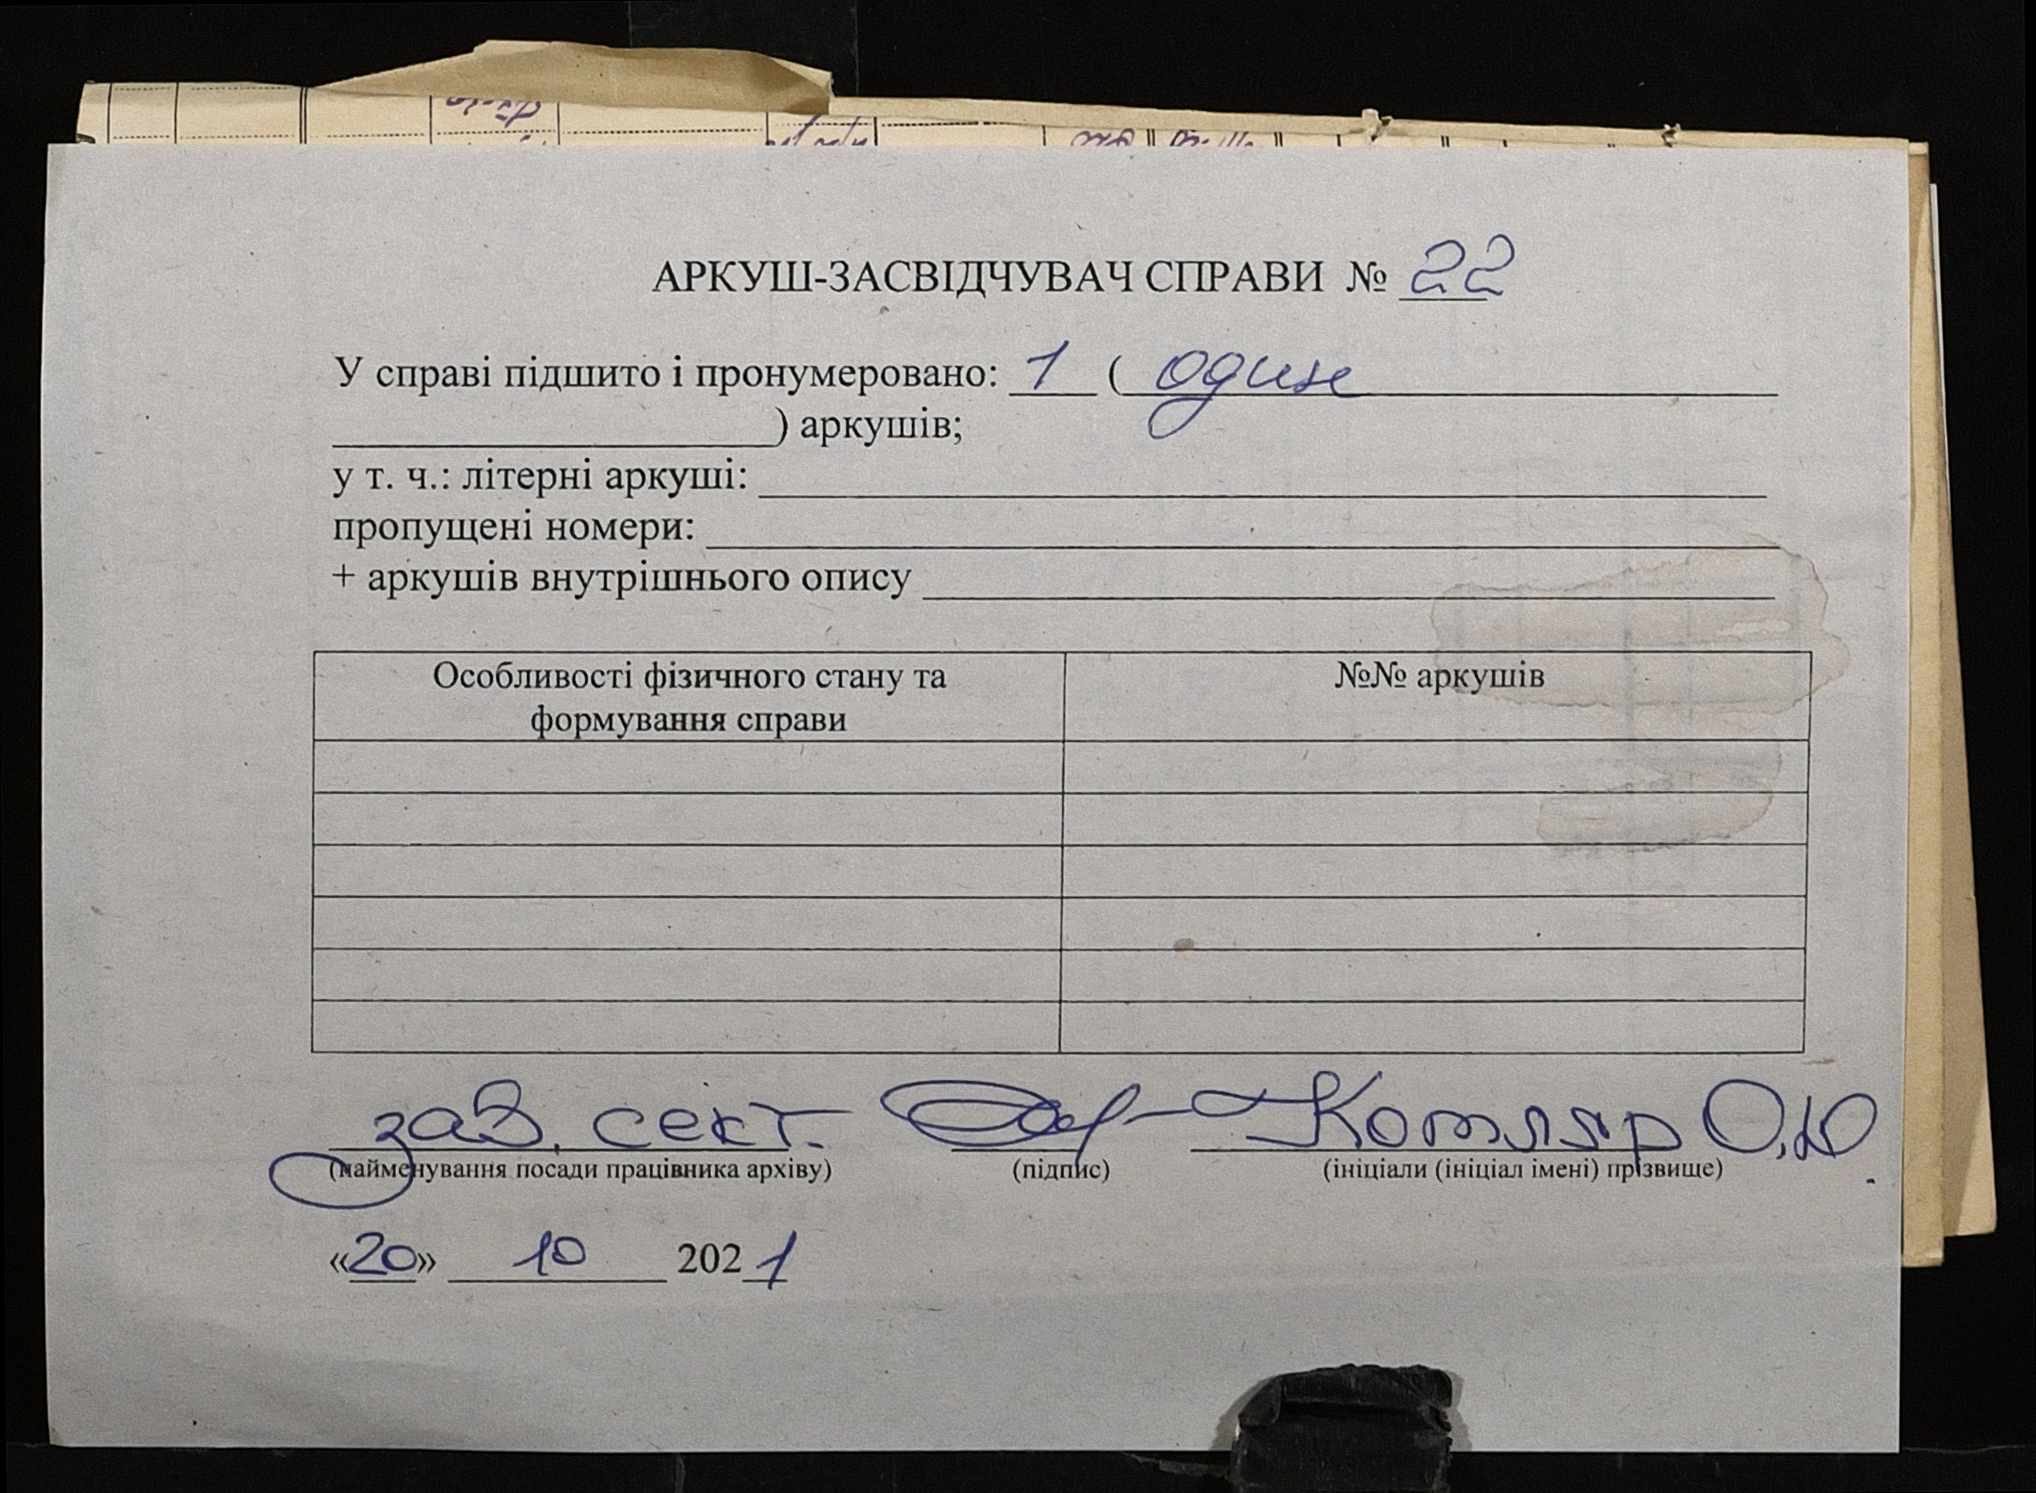 АРКУШ-ЗАСВІДЧУВАЧ СПРАВИ № 22
У справі підшито і пронумеровано: 1 ( один
) аркушів;
у т. ч.: літерні аркуші:
пропущені номери:
+ аркушів внутрішнього опису
Особливості фізичного стану та
формування справи
№№ аркушів
зав. сект. Котляр О.Ю.
(найменування посади працівника архіву) (підпис) (ініціали (ініціал імені) прізвище)
«20» 10 2021